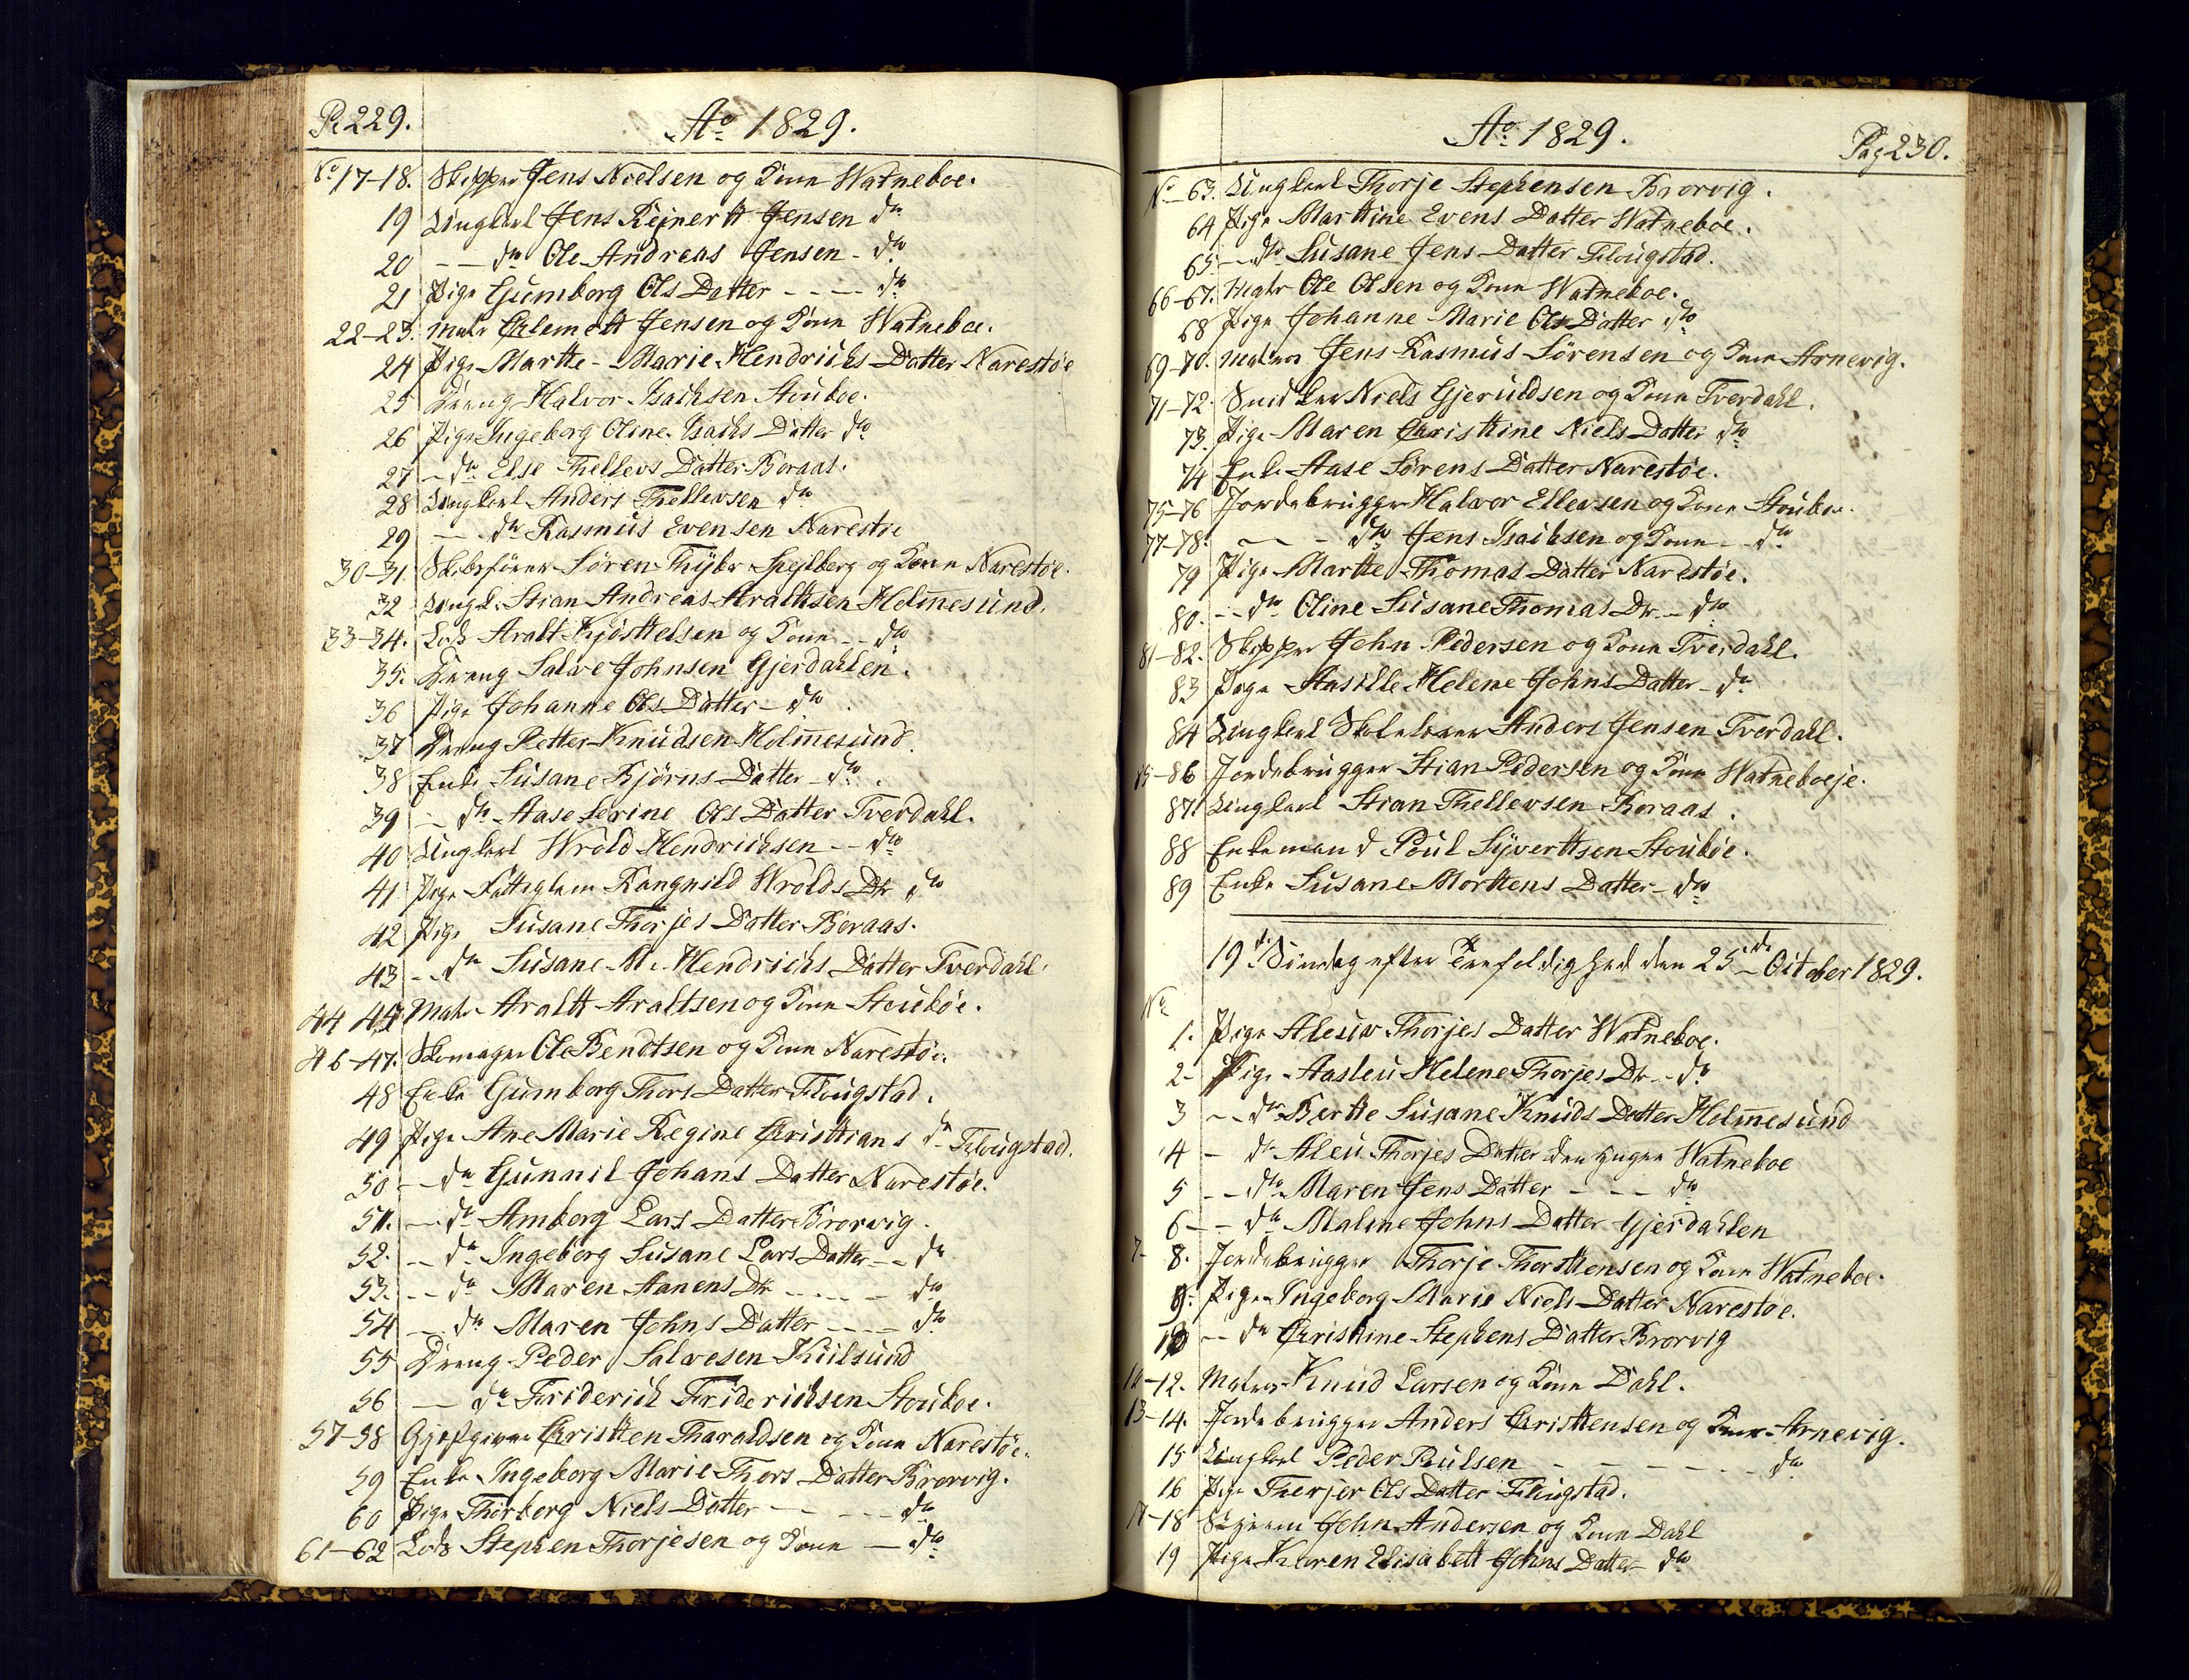 P: 229.
Ao 1829.
No 17-18. Skipper Jens Nielsen og Kone Watneboe.
19 Ungkarl Jens Rejnertt Jensen do
20 -- do Ole Andreas Jensen - do
21 Pige Gumborg Ols Datter - - - do
22-23. Matr Clemett Jensen og Kone Watneboe.
24 Pige Martte-Marie Hendrichs Datter Narestöe
25 Dreng Halvor Isachsen Stouboe.
26 Pige Ingeborg Oline Isachs Datter do
27 - do Else Thellevs Datter Boraas.
28 Ungkarl Anders Thellevsen do
29 -- do Rasmus Evensen Narestöe
30-31. Skibsfører Søren Thybr Spejlberg og Kone Narestöe.
32 Ungk: Stian Andreas Aralttsen Holmesund.
33-34. Lods Aralt Kjösttelsen og Kone -- do
35. Dreng Salve Johnsen Gjerdahlen.
36 Pige Johanne Ols Datter - do
37 Dreng Petter Knudsen Holmesund.
38 Enke Susane Bjørns Datter - do.
39 - do Aase Serine Ols Datter Tverdahl.
40 Ungkarl Wrold Hendrichsen -- do
41. Pige Fattiglem Rangnild Wrolds Dtr do
42 Pige Susane Thorjes Datter Boraas.
43 -- do Susane M: Hendrichs Datter Tverdahl.
44 45 Matr Araltt Araltsen og Kone Stouböe.
46-47. Skomager Ole Bendtsen og Kone Narestöe.
48 Enke Gumborg Thors Datter Flougstad.
49 Pige Ane Marie Regine Christtians do Flougstad.
50 -- do Gunnil Johans Datter Narestöe.
51. -- do Amborg Lars Datter Brorvig.
52. -- do Ingeborg Susane Lars Datter -- do
53. -- do Maren Aanens Dtr ---- do
54 -- do Maren Johns Datter ---- do
55 Dreng Peder Salvesen Kiilsund
56 -- do Friderich Friderichsen Stouboe.
57-58 Gjæstgiver Christten Tharaldsen og Kone Narestöe.
59 Enke Ingeborg Marie Thors Datter Brorvig.
60 Pige Thorborg Niels Datter ---- do
61-62 Lods Stephen Thorjesen og Kone - do
Ao 1829.
Pag 230.
No - 63. Ungkarl Thorje Stephensen Brorvig.
64 Pige Marttine Evens Datter Watneboe.
65 -- do Susane Jens Datter Flougstad.
66-67. Ole Olsen og Kone Watneboe.
68 Pige Johanne Marie Ols Datter do
69-70. Matros Jens Rasmus Sörensen og Kone Arnevig.
71-72. Snidker Niels Gjeruldsen og Kone Tverdahl.
73. Pige Maren Christtine Niels Datter do
74 Enke Aase Sörens Datter Narestöe.
75-76 Jordebrugger Halvor Ellevsen og Kone Stouboe.
77-78. -- - do Jens Isachsen og Kone -- do
79 Pige Martte Thomas Datter Narestöe.
80. -- do Oline Susane Thomas Dr - do
81-82. Skipper John Pedersen og Kone Tverdahl.
83 Pige Aasille Helene Johns Datter - do
84 Ungkarl Skolelærer Anders Jensen Tverdahl.
85-86 Jordebrugger Stian Pedersen og Kone Watneboeje.
87. Ungkarl Stian Thellevsen Boraas.
88 Enkemand Poul Syverttsen Stouböe.
89 Enke Susane Morttens Datter - do
19de Søndag efter Trefoldighed den 25de October 1829.
No
1. Pige Aleuv Thorjes Datter Watneboe.
2- Pige Aasleu Helene Thorjes Dtr -- do
3 -- do Bertte Susane Knuds Datter Holmesund
4 - do Aleu Thorjes Datter den yngre Watneboe
5 -- do Maren Jens Datter - - - do
6 -- do Malene Johns Datter Gjerdahlen
7- 8. Jordebrugger Thorje Thorsttensen og Kone Watneboe.
9. Pige Ingeborg Marie Niels Datter Narestöe.
10 -- do Christtine Stephens Datter Brorvig
11-12. Matros Knud Larsen og Kone Dahl.
13-14. Jordebrugger Anders Christtensen og Kone Arnevig.
15 Ungkarl Peder Poulsen - - - - - do
16 Pige Therjer Ols Datter Flougstad.
17-18 John Andersen og Kone Dahl
19 Pige Karen Elisabett Johns Datter - do